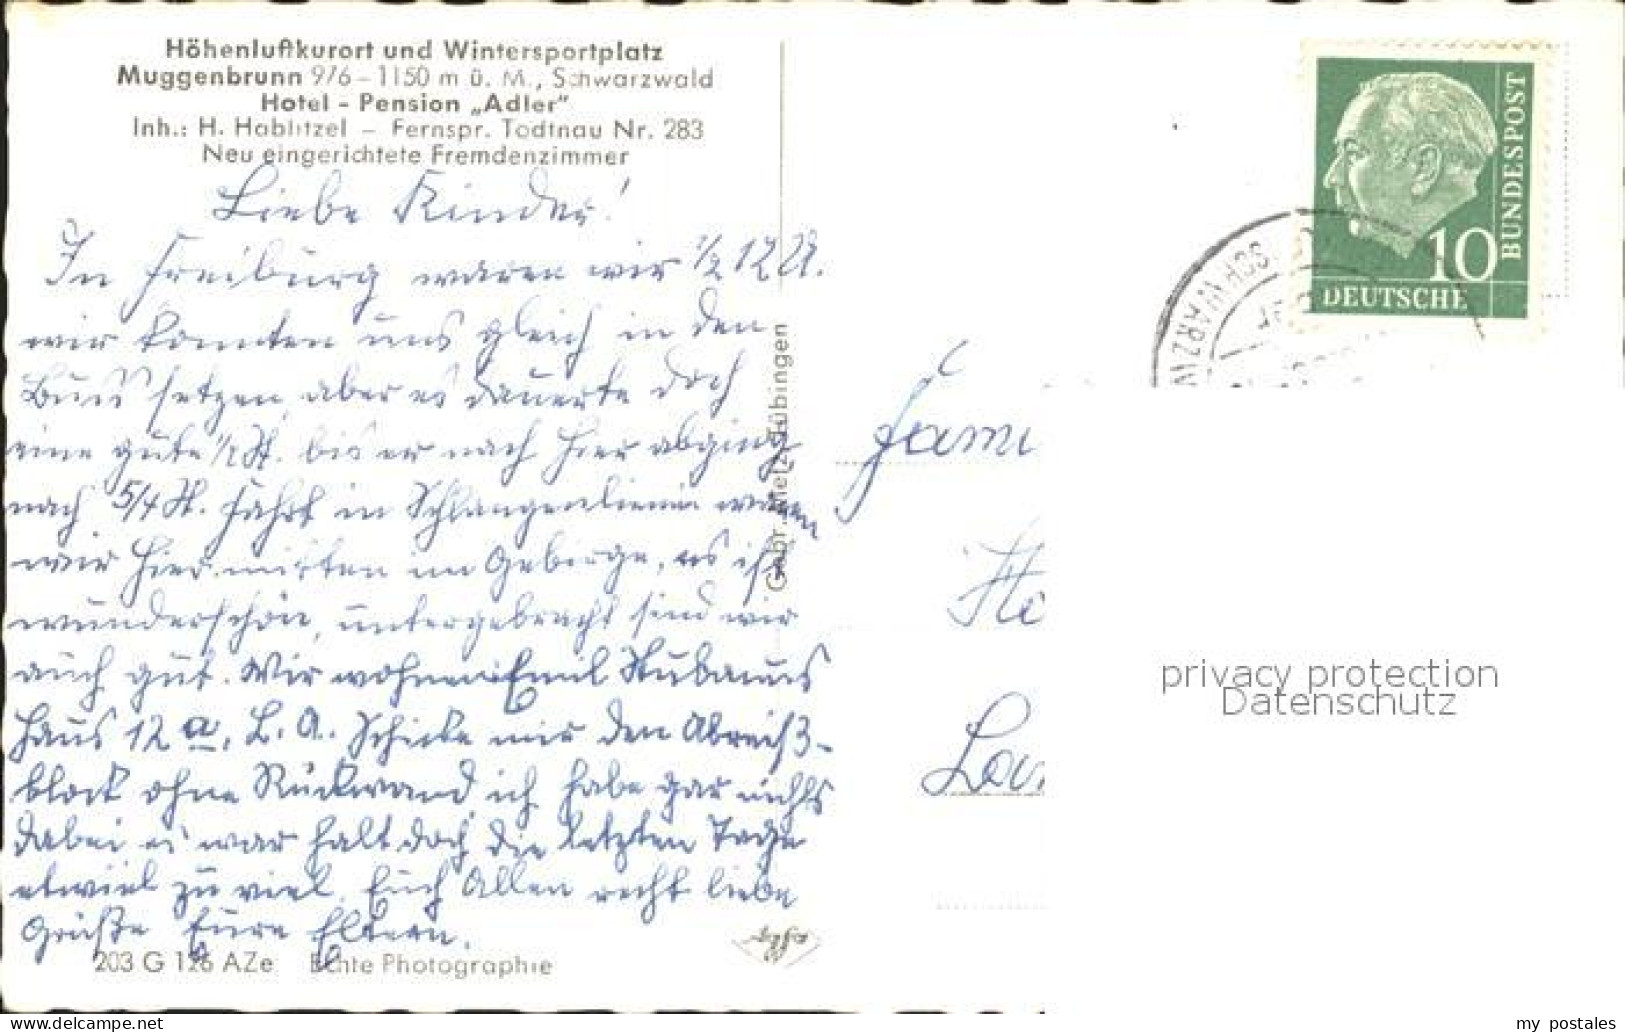 Höhenluftkurort und Wintersportplatz
Muggenbrunn 976-1150 m ü. M., Schwarzwald
Hotel - Pension „Adler"
Inh.: H. Hablitzel - Fernspr. Todtnau Nr. 283
Neu eingerichtete Fremdenzimmer
Liebe Kinder!
In Freiburg waren wir 1/2 12 U.
wir konnten uns gleich in den
Buss setzen, aber es dauerte doch
eine gute 1/2 St. bis er nach hier abging
nach 5/4 St. Fahrt in Schlangenlinien waren
wir hier mitten im Gebirge, es ist
wunderschön, untergebracht sind wir
auch gut. Wir wohnen Emil
Haus 12 a, L. A. Schicke mir den Abreiß-
block ohne Rückwand, ich habe gar nichts
dabei es war halt doch die letzten Tage
etwas zu viel. Euch Allen recht liebe
Grüße Eure Eltern.
203 G 126 AZe Echte Photographie
Gebr. Metz, Tübingen
DEUTSCHE BUNDESPOST
10
SCHWARZW
Fami
privacy protection
Datenschutz
my_postales
www.delcampe.net